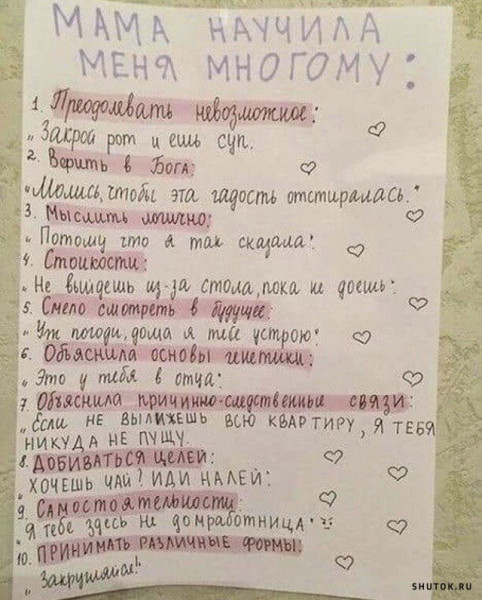 МАМА НАУЧИЛА
МЕНЯ МНОГОМУ:
1. Преодолевать невозможное:
„Закрой рот и ешь суп.
2. Верить в Бога:
„Молись, чтобы эта гадость отстиралась."
3. Мыслить логично:
„Потому что я так сказала"
4. Стойкости:
„Не выйдешь из-за стола, пока не доешь"
5. Смело смотреть в будущее:
„Уж погоди, дома я тебе устрою"
6. Объяснила основы генетики:
„Это у тебя в отца"
7. Объяснила причинно-следственные связи:
„Если НЕ ВЫЛИЖЕШЬ ВСЮ КВАРТИРУ, Я ТЕБЯ
НИКУДА НЕ ПУЩУ.
8. ДОБИВАТЬСЯ ЦЕЛЕЙ:
„ХОЧЕШЬ ЧАЙ? ИДИ НАЛЕЙ"
9. Самостоятельности:
„Я тебе здесь не домработница"
10. ПРИНИМАТЬ РАЗЛИЧНЫЕ ФОРМЫ:
„Закругляйся!"
SHUTOK.RU